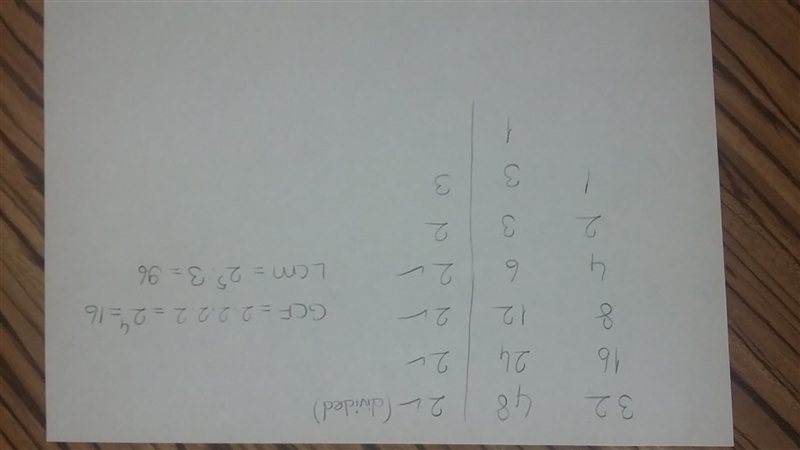 32 48 2 ✓ (divided)
16 24 2 ✓
8 12 2 ✓ GCF = 2.2.2.2 = 2⁴ = 16
4 6 2 ✓ Lcm = 2⁵. 3 = 96
2 3 2
1 3 3
1